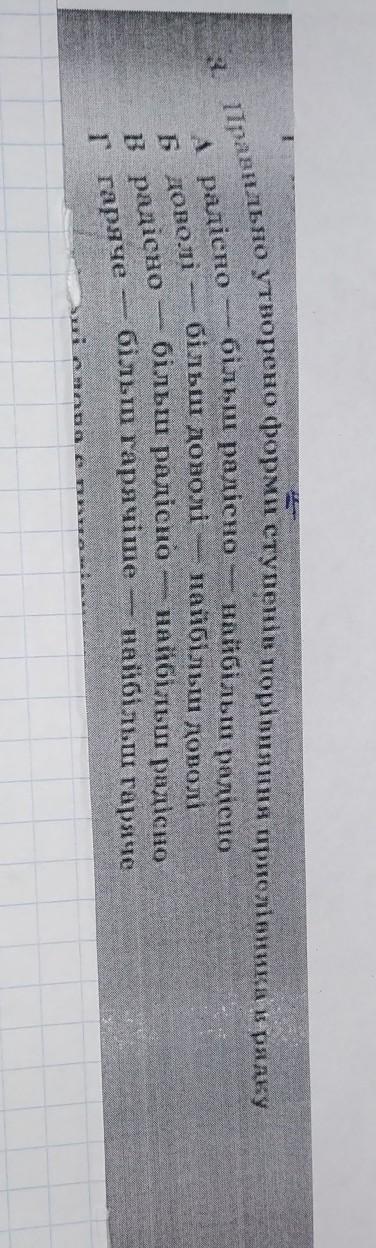 3. Правильно утворено форми ступенів порівняння прислівника в рядку
А радісно — більш радісно — найбільш радісно
Б доволі — більш доволі — найбільш доволі
В радісно — більш радісно — найбільш радісно
Г гаряче — більш гарячіше — найбільш гаряче